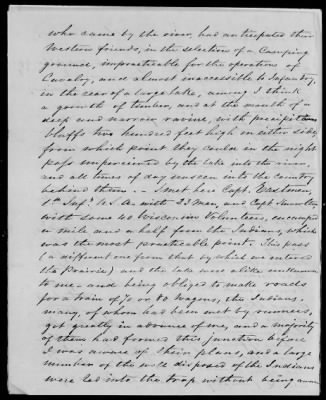 who came by the river, had anticipated their
Western friends, in the selection of a Camping
ground, impracticable for the operations of
Cavalry, and almost inaccessible to Infantry,
in the rear of a large lake, among I think
a growth of timber, and at the mouth of a
deep and narrow ravine, with precipitous
bluffs two hundred feet high on either side,
from which point they could in the night
pass unperceived by the lake into the river,
and all times of day unseen into the country
behind them. -- I met here Capt. Eastman,
1st Infy. U.S.A. with 23 men, and Capt.
with some 40 Wisconsin Volunteers, encamped
a mile and a half from the Indians, which
was the most practicable point. This pass
(a different one from that by which we entered
the Prairie) and the lake were alike unknown
to me - and being obliged to make roads
for a train of 70 or 80 wagons, the Indians,
many, of whom had been met by runners,
got greatly in advance of me, and a majority
of them had formed this junction before
I was aware of their plans, and a large
number of the well disposed of the Indians
were led into the trap without being aware